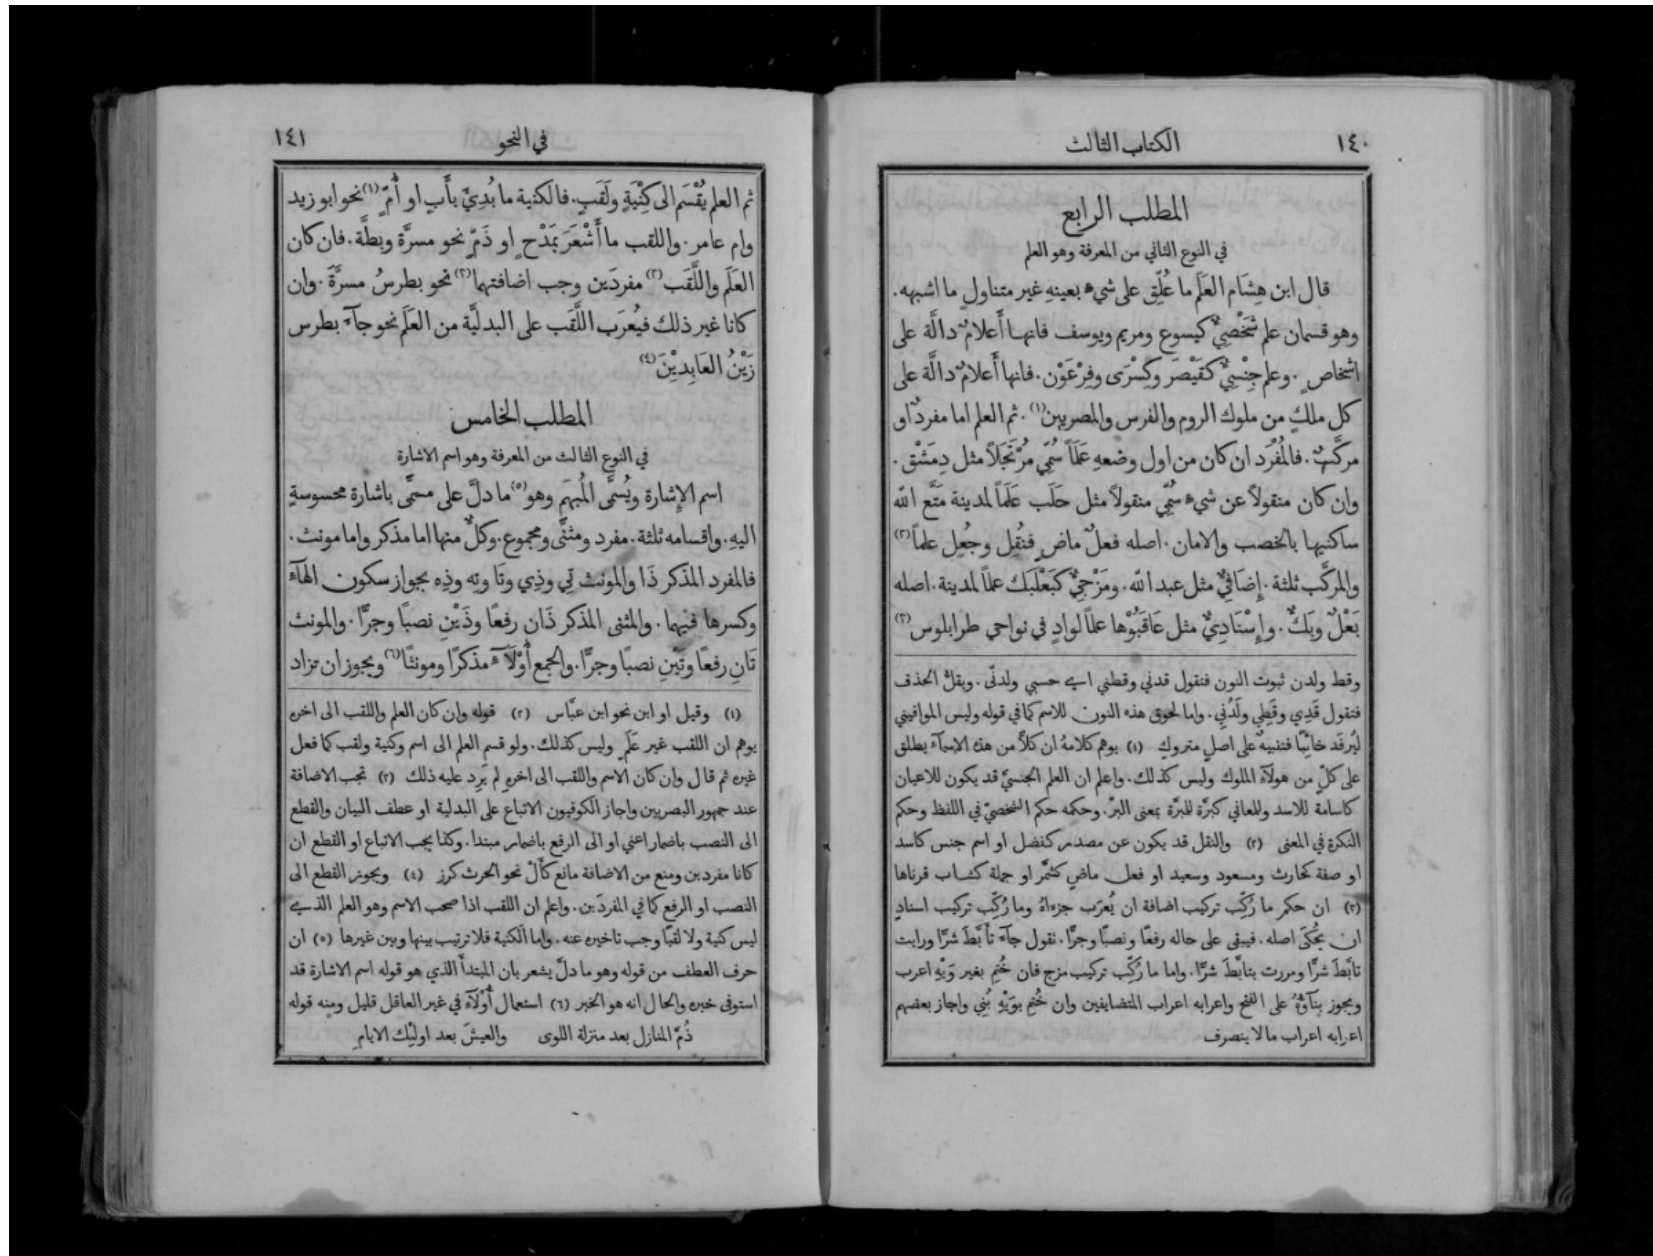 ١٤٠ الكتاب الثالث
المطلب الرابع
في النوع الثاني من المعرفة وهو العلم
قال ابن هِشَام العَلَم ما عُلِّقَ على شيءٍ بعينهِ غير متناولٍ ما اشبهه.
وهو قسمان علم شَخْصِيٌّ كيسوع ومريم ويوسف فانها أَعلامٌ دالَّة على
اشخاصٍ. وعلم جِنْسِيٌّ كقَيْصَرَ وكِسْرَى وفِرْعَوْن. فانها أَعلامٌ دالَّة على
كل ملكٍ من ملوك الروم والفرس والمصريين (١). ثم العلم اما مفردٌ او
مركَّبٌ. فالمُفْرَد ان كان من اول وضعهِ عَلَماً سُمِّيَ مُرْتَجَلاً مثل دِمَشْق.
وان كان منقولاً عن شيءٍ سُمِّيَ منقولاً مثل حَلَب عَلَماً لمدينة مَتَّع الله
ساكنيها بالخصب والامان. اصله فعلٌ ماضٍ فنُقِل وجُعِل علماً (٢)
والمركَّب ثلثة. إِضَافِيٌّ مثل عبد الله. ومَزْجِيٌّ كبَعْلَبَك علماً لمدينة. اصله
بَعْلٌ وبَكٌّ. وإِسْنَادِيٌّ مثل عَاقَبُوْها علماً لوادٍ في نواحي طرابلوس (٣)
وقط ولدن ثبوت النون فتقول قدني وقطني اي حسبي ولدنّي. ويقلّ الحذف
فتقول قَدِي وقَطِي ولَدُنِي. واما لحوق هذه النون للاسم كما في قوله وليس الموافيني
ليُرفَد خائِبًا فتنبيهٌ على اصلٍ متروكٍ (١) يوهم كلامهُ ان كلاًّ من هذه الاسمآء يطلق
على كلٍّ من هولآء الملوك وليس كذلك. واعلم ان العلم الجنسيَّ قد يكون للاعيان
كاسامة للاسد وللمعاني كبرّة للمبرّة بمعنى البرّ. وحكمه حكم الشخصيّ في اللفظ وحكم
النكرة في المعنى (٢) والنقل قد يكون عن مصدر كفضل او اسم جنس كاسد
او صفة كحارث ومسعود وسعيد او فعل ماضٍ كشمَّر او جملة كشاب قرناها
(٣) ان حكم ما رُكِّب تركيب اضافة ان يُعرَب جزءاهُ وما رُكِّب تركيب اسنادٍ
ان يُحكَى اصله. فيبقى على حاله رفعًا ونصبًا وجرًّا. تقول جآء تأَبَّطَ شرًّا ورايت
تأبَّطَ شرًّا ومررت بتأبَّطَ شرًّا. واما ما رُكِّب تركيب مزج فان خُتِم بغير وَيْهِ اعرب
ويجوز بنآؤهُ على الفتح واعرابه اعراب المتضايفين وان خُتِم بوَيْهِ بُنِي واجاز بعضهم
اعرابه اعراب ما لا ينصرف
في النحو ١٤١
ثم العلم يُقْسَم الى كِنْيَةٍ ولَقَبٍ. فالكنية ما بُدِئَ بأَبٍ او أُمٍّ (١) نحو ابو زيد
وام عامر. واللقب ما أَشْعَرَ بمَدْحٍ او ذَمٍّ نحو مسرَّة وبطَّة. فان كان
العَلَم واللَّقَب (٢) مفردَين وجب اضافتهما (٣) نحو بطرسُ مسرَّةَ. وان
كانا غير ذلك فيُعرَب اللَّقَب على البدليَّة من العَلَم نحو جآءَ بطرس
زَيْنُ العَابِدِيْنَ (٤)
المطلب الخامس
في النوع الثالث من المعرفة وهو اسم الاشارة
اسم الإِشارة ويُسمَّى المُبهَم وهو (٥) ما دلَّ على مسمًّى باشارة محسوسةٍ
اليهِ. واقسامه ثلثة. مفرد ومثنًّى ومجموع. وكلٌّ منها اما مذكر واما مونث.
فالمفرد المذكر ذَا والمونث تِي وذِي وتَا وتِه وذِه بجواز سكون الهآء
وكسرها فيهما. والمثنى المذكر ذَانِ رفعًا وذَيْنِ نصبًا وجرًّا. والمونث
تَانِ رفعًا وتَيْنِ نصبًا وجرًّا. والجمع أُوْلَآءِ مذكرًا ومونثًا (٦) ويجوز ان تزاد
(١) وقيل او ابن نحو ابن عبّاس (٢) قوله وان كان العلم واللقب الى اخره
يوهم ان اللقب غير عَلَمٍ وليس كذلك. ولو قسم العلم الى اسم وكنية ولقب كما فعل
غيره ثم قال وان كان الاسم واللقب الى اخرهِ لم يَرِد عليه ذلك (٣) تجب الاضافة
عند جمهور البصريين واجاز الكوفيون الاتباع على البدلية او عطف البيان والقطع
الى النصب باضمار اعني او الى الرفع باضمار مبتدا. وكذا يجب الاتباع او القطع ان
كانا مفردين ومنع من الاضافة مانع كأَلْ نحو الحرث كرز (٤) ويجوز القطع الى
النصب او الرفع كما في المفردَين. واعلم ان اللقب اذا صحب الاسم وهو العلم الذي
ليس كنية ولا لقبًا وجب تاخيره عنه. واما الكنية فلا ترتيب بينها وبين غيرها (٥) ان
حرف العطف من قوله وهو ما دلّ يشعر بان المبتدأ الذي هو قوله اسم الاشارة قد
استوفى خبره والحال انه هو الخبر (٦) استعمال أُوْلآء في غير العاقل قليل ومنه قوله
ذُمَّ المنازل بعد منزلة اللوى والعيشَ بعد اولئِك الايامِ